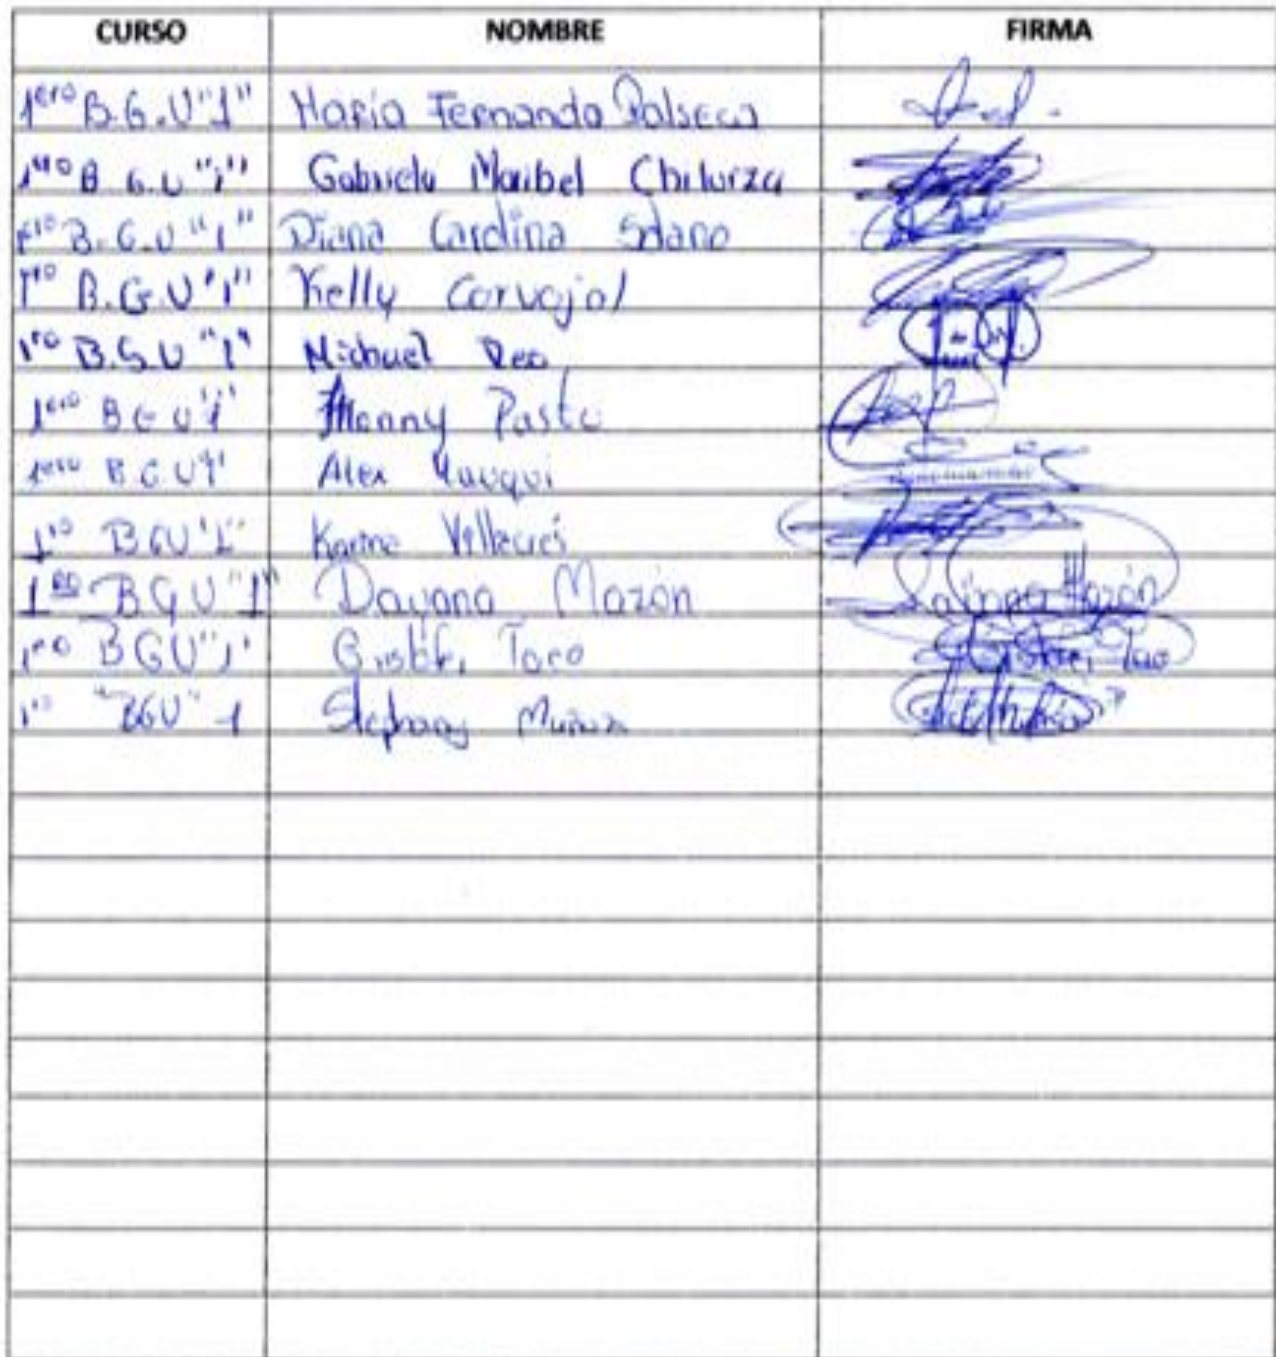 CURSO NOMBRE FIRMA
1ero B.G.U "1" Maria Fernanda
1ero B.G.U "1" Gabriela Maribel Chiluiza
1ero B.G.U "1" Diana Carolina Solano
1ero B.G.U "1" Kelly Carvajal
1ro B.G.U "1" Michael
1ero BGU "1" Jhonny Pasto
1ero BGU "1" Alex Yauqui
1ro BGU "1" Karina Villacrés
1ro BGU "1" Dayana Mazón Dayana Mazón
1ro BGU "1" Toro
1ro "BGU" 1 Stephany Muñoz